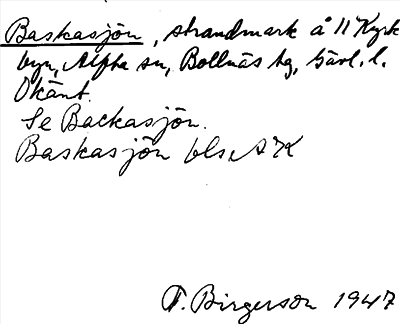 Baskasjön, strandmark å 11 Kyrk
byn, Alfta sn, Bollnäs tg, Gävl. l.
Okänt.
Se Backasjön.
Baskasjön bls. AK
F. Birgerson 1947